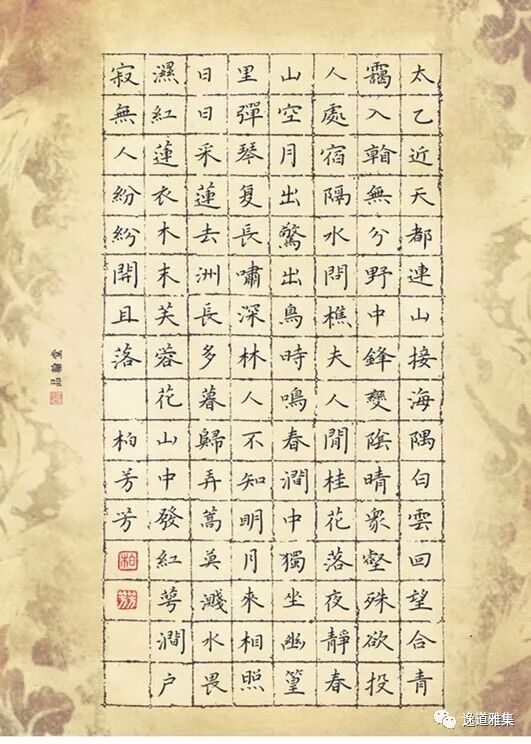 太乙近天都連山接海隅白雲回望合青
靄入無兮野中鋒變陰晴衆壑殊欲投
人處宿隔水問樵夫人閒桂花落夜靜春
山空月出驚出鳥時鳴春澗中獨坐幽篁
里彈琴复長嘯深林人不知明月來相照
日日采蓮去洲長多暮歸弄蒿莫濺水畏
濕紅蓮衣木末芙蓉花山中發紅萼澗户
寂無人紛紛開且落
柏芳芳
柏
芳芳
品翰堂
逸道雅集